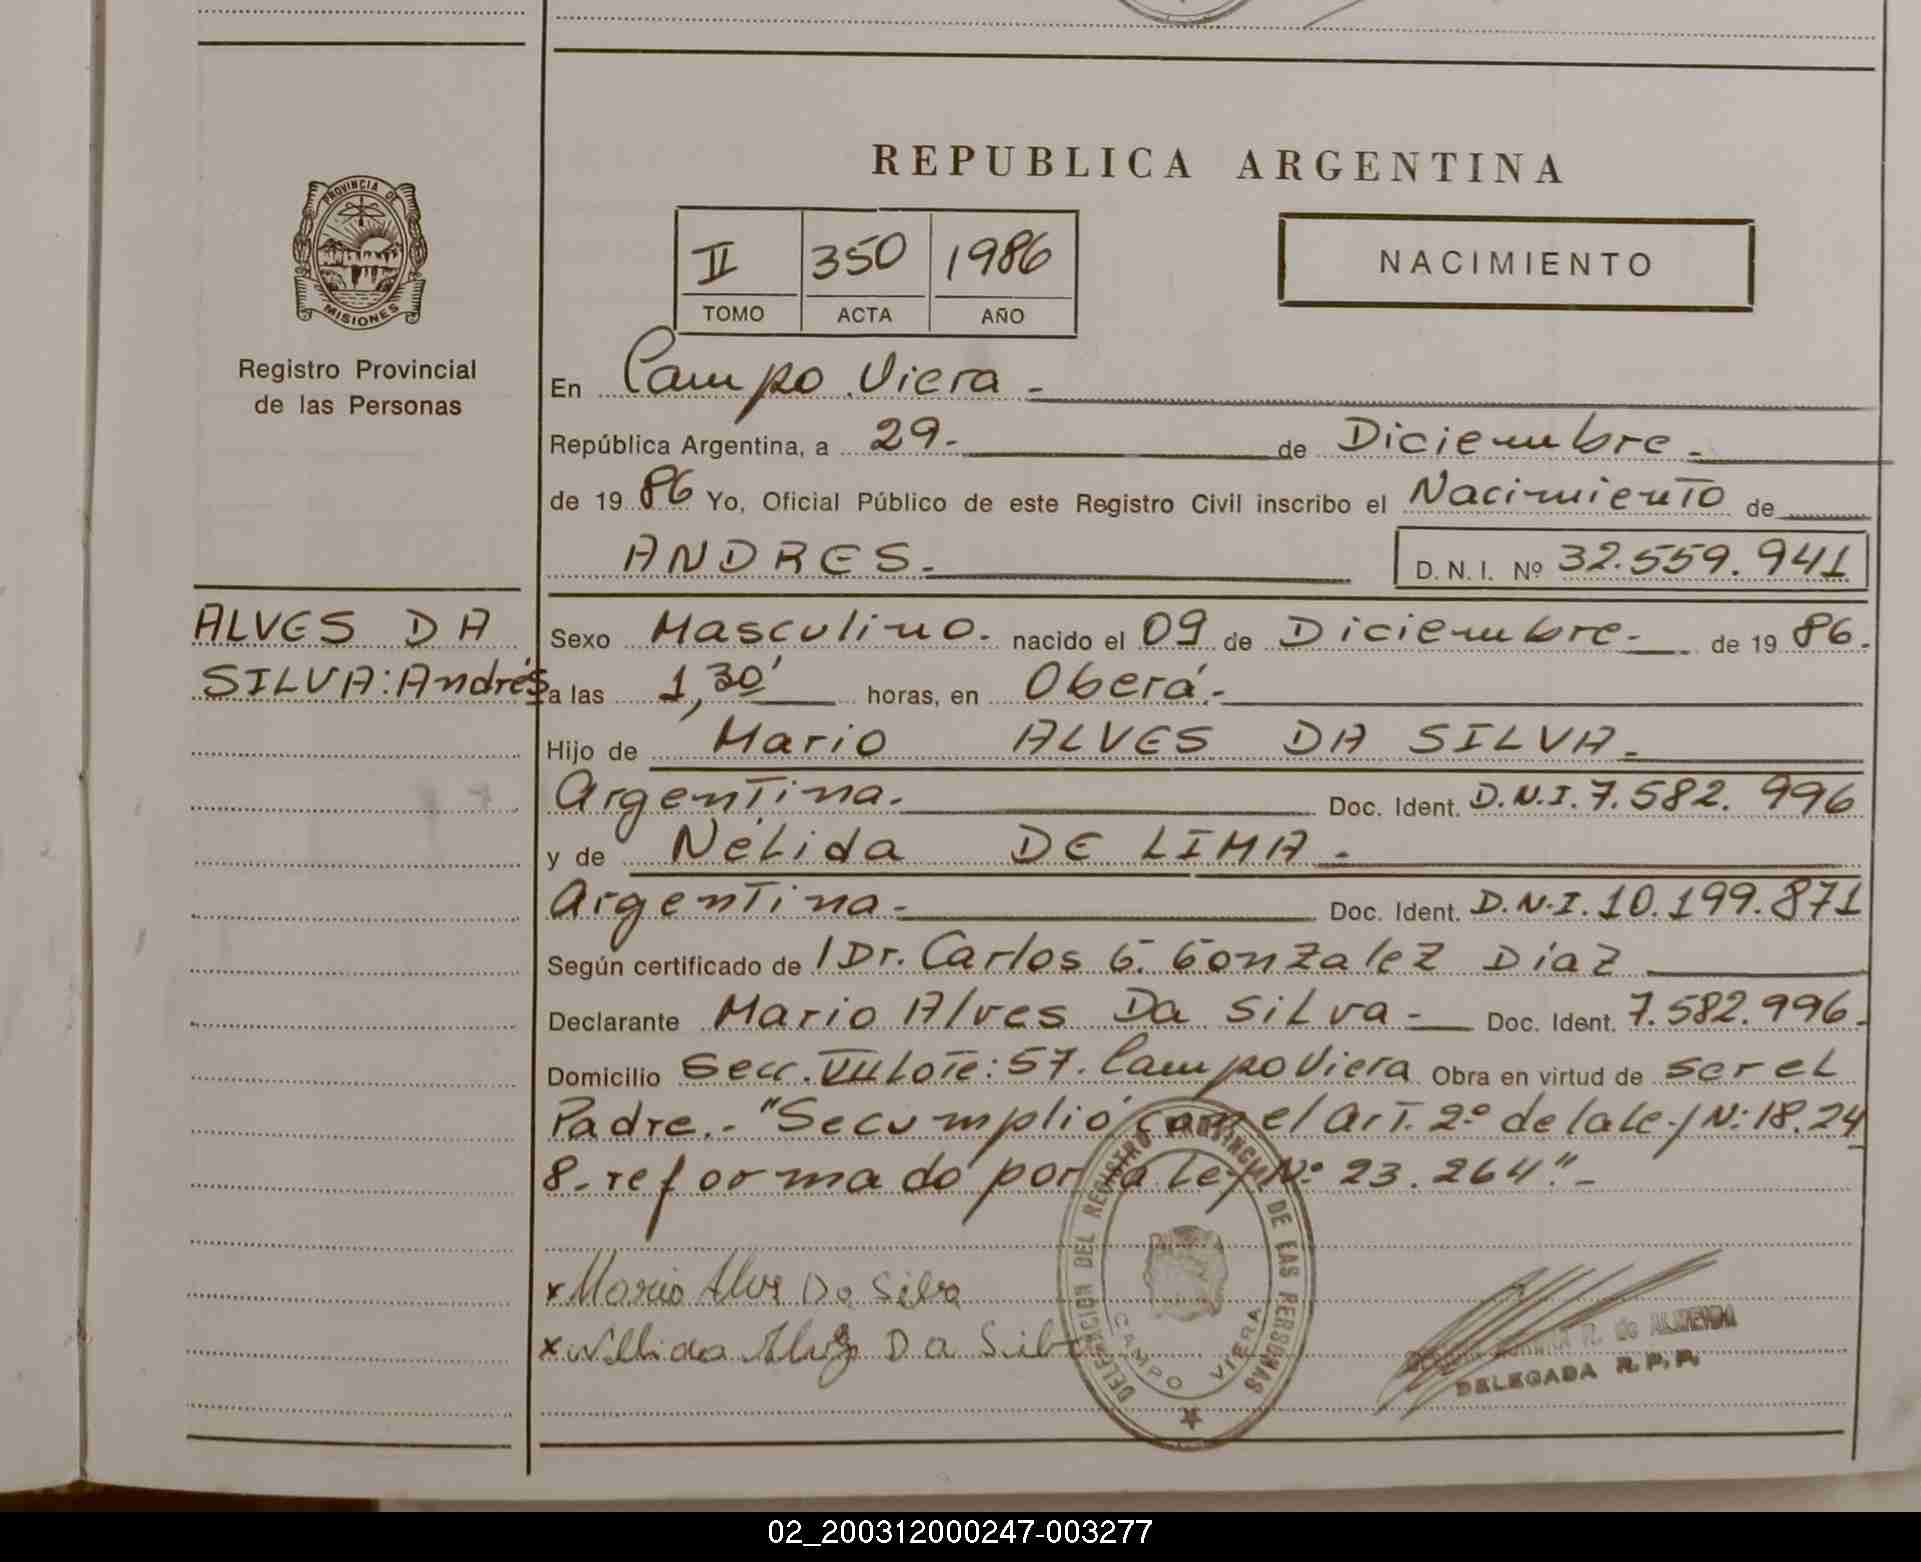 PROVINCIA DE
MISIONES
Registro Provincial
de las Personas
ALVES DA
SILVA: Andrés
REPUBLICA ARGENTINA
II 350 1986
TOMO ACTA AÑO
NACIMIENTO
En Campo Viera.-
República Argentina, a 29.- de Diciembre.-
de 19 86 Yo, Oficial Público de este Registro Civil inscribo el Nacimiento de
ANDRES.- D. N. I. Nº 32.559.941
Sexo Masculino. nacido el 09 de Diciembre.- de 19 86.
a las 1,30' horas, en Oberá.-
Hijo de Mario ALVES DA SILVA.-
Argentina.- Doc. Ident. D.N.I. 7.582.996
y de Nélida DE LIMA.-
Argentina.- Doc. Ident. D.N.I. 10.199.871
Según certificado de Dr. Carlos G. Gonzalez Díaz
Declarante Mario Alves Da Silva.- Doc. Ident. 7.582.996.
Domicilio Secc. VII Lote: 57. Campo Viera Obra en virtud de ser el
Padre.- "Se cumplió con el art. 2º de la ley N: 18.24
8.- reformado por la ley Nº 23.264".-
x Mario Alves Da Silva
x Nelida Alves Da Silva
DELEGACION DEL REGISTRO PROVINCIAL DE LAS PERSONAS
CAMPO VIERA
de ALMEIDA
DELEGADA R.P.P.
02_200312000247-003277